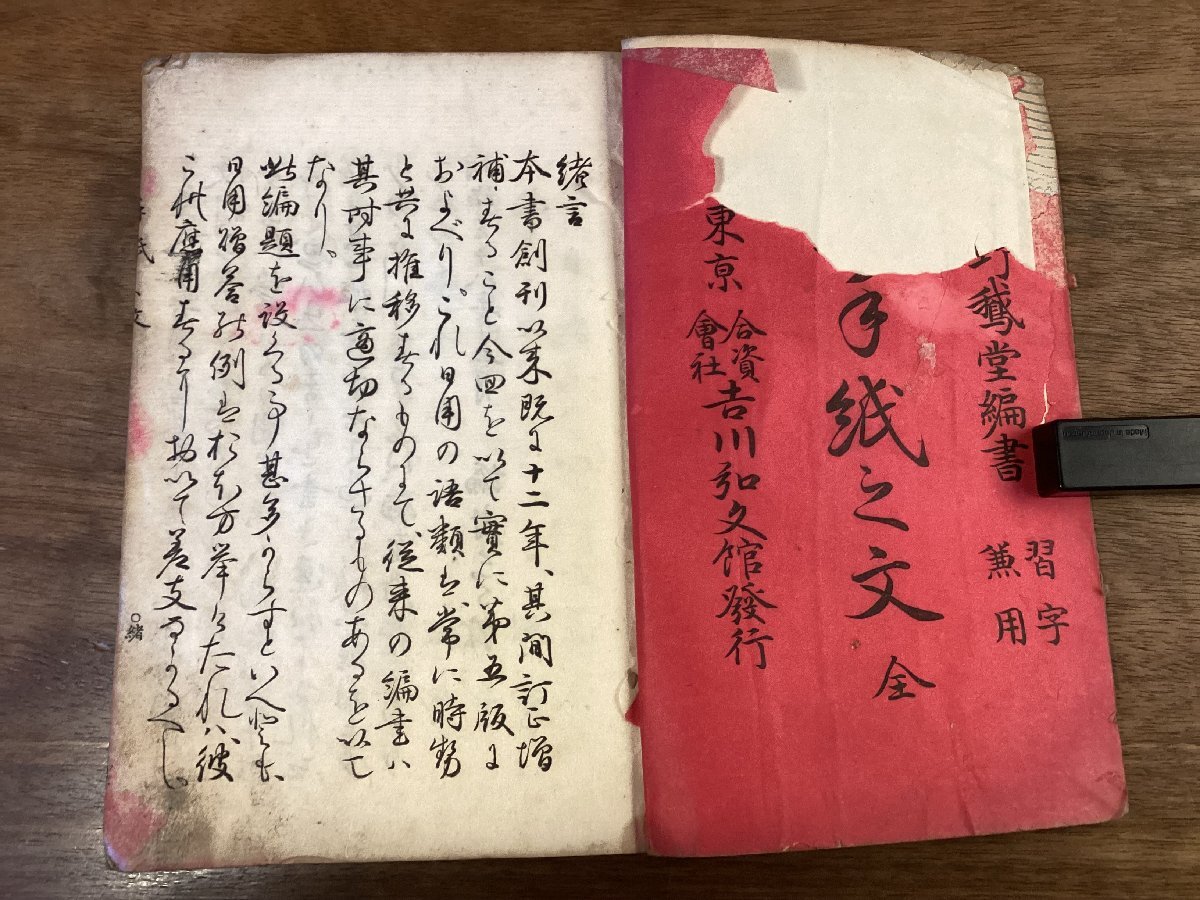 鵞堂編書
習字
兼用
手紙之文 全
東京
合資
會社
吉川弘文館發行
緒言
本書創刊以来既に十二年、其間訂正増
補することを今回を以て實に第五版に
およべり。これ日用の語類は常に時勢
と共に推移するものにて、従来の編書ハ
其時事に適切ならざるものあるを以て
なり。
此編題を設くる事甚多からずといへども、
日用贈答の例はおほ方挙げたれバ、彼
これ應用するに於いて差支なかるべし。
○緒